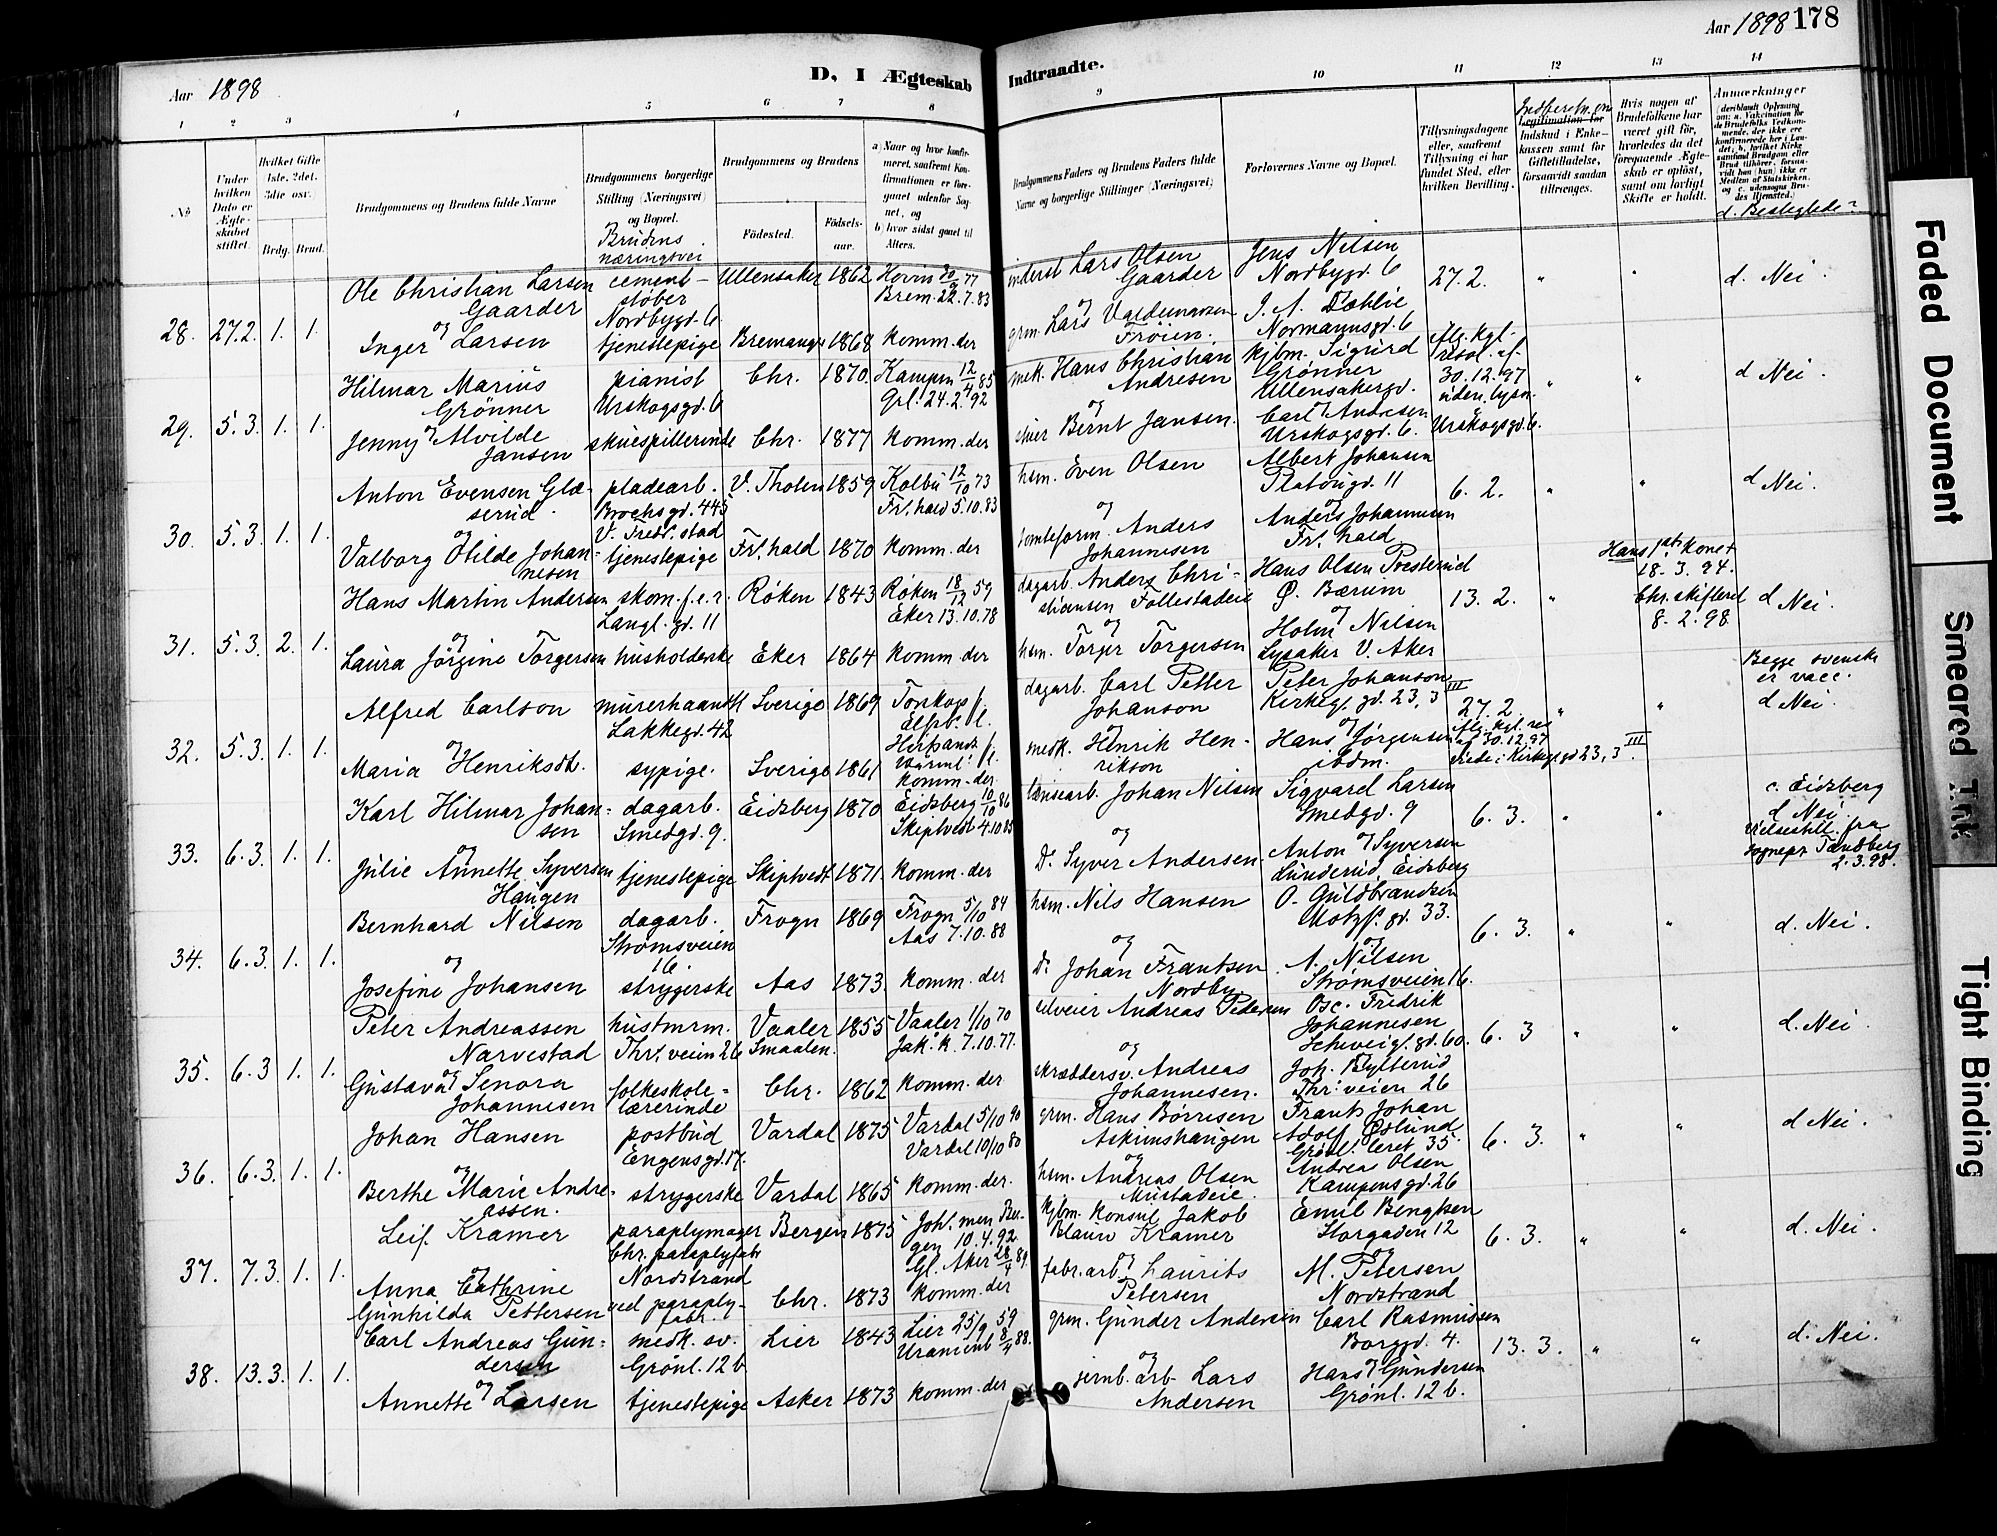 Aar 1898
D. I Ægteskab Indtraadte.
Aar 1898 178
1 2 3 4 5 6 7 8 9 10 11 12 13 14
No.
Under hvilken Dato er Ægteskabet stiftet.
Hvilket Gifte 1ste, 2det, 3die osv.
Brdg. Brud.
Brudgommens og Brudens fulde Navne
Brudgommens borgerlige Stilling (Næringsvei) og Bopæl.
Brudens næringsvei
Brudgommens og Brudens
Fødested.
Fødselsaar.
a) Naar og hvor konfirmeret, saafremt Konfirmationen er foregaaet udenfor Sognet, og
b) hvor sidst gaaet til Alters.
Brudgommens Faders og Brudens Faders fulde Navne og borgerlige Stillinger (Næringsvei)
Forlovernes Navne og Bopæl.
Tillysningsdagene eller, saafremt Tillysning ei har fundet Sted, efter hvilken Bevilling.
Legitimation for Indskud i Enkekassen samt for Giftetilladelse, forsaavidt saadan tiltrænges.
Hvis nogen af Brudefolkene har været gift før, hvorledes da det foregaaende Ægteskab er opløst, samt om lovligt Skifte er holdt.
Anmærkninger
d. Beslegtede?
28. 27.2. 1. 1.
Ole Christian Larsen Gaarder
cementstøber Nordbygd. 6
Ullensaker 1862
Hovin 77
Brem. 22.7.83
inderst Lars Olsen Gaarder
Jens Nilsen Nordbygd. 6
27.2. " " d. Nei
og
Inger Larsen
tjenestepige
Bremanger 1868 komm. der
grm. Lars Valdemarsen Frøien.
J. A. Dæhlie Normannsgd. 6
29. 5.3. 1. 1.
Hilmar Marius Grønner
pianist Urskogsgd. 6
Chr. 1870.
Kampen 12/4 85
Grl. 24.2.92
mek. Hans Christian Andresen
kjbm. Sigurd Grønner Ullensakergd.
Alg. kgl. resol. af 30.12.97 uden lysn.
" " d Nei.
og
Jenny Alvilde Jansen
skuespillerinde Chr. 1877 komm. der
Bernt Jansen.
Carl Andresen Urskogsgd. 6.
Urskogsgd. 6.
30. 5.3. 1. 1.
Anton Evensen Glæserud
pladearb. Brochsgd. 443 V. Fredr.stad
V. Thoten 1859
Kolbu 12/10 73
Fr.hald 5.10.83
hsm. Even Olsen
Albert Johansen Platougd. 11
6.2. " " d Nei.
og
Valborg Otilde Johannesen
tjenestepige Fr.hald 1870 komm. der
tomteform. Anders Johannesen
Anders Johannesen Fr.hald
31. 5.3. 2. 1.
Hans Martin Andersen
skom. f.e.r. Langl. gd. 11
Røken 1843
Røken 18/12 59
Eker 13.10.78
dagarb. Anders Christiansen Follestadeie
Hans Olsen Presterud Ø. Bærum
13.2. "
Hans 1ste kone + 18.3.94. Chr. skifteret 8.2.98
d Nei.
og
Laura Jörgine Torgersen
husholderske Eker 1864 komm. der
hsm. Torger Torgersen
Holm Nilsen Lysaker V. Aker
32. 5.3. 1. 1.
Alfred Carlson
murerhaandt. Lakkegd. 42
Sverige 1869
dagarb. Carl Petter Johanson
Peter Johanson Kirkeg. gd. 23, 3
27.2. " "
Begge svenske er vacc.
d Nei.
og
Maria Henriksdt.
sypige. Sverige 1861 komm. der
medk. Henrik Henrikson
Hans Jørgensen ibdm.
Alg. kgl. res af 30.12.97 viede i Kirkegd 23, 3 III
33. 6.3. 1. 1.
Karl Hilmar Johansen
dagarb. Smedgd. 9.
Eidsberg 1870
Eidsberg 10/10 86
Skiptvedt 4.10.85
lænsearb. Johan Nilsen
Sigvard Larsen Smedgd. 9
6.3. " "
c. Eidsberg
d. Nei
Vielsestill. fra sognepr Tandberg 2.3.98.
og
Julie Annette Syversen Haugen
tjenestepige Skiptvedt 1871 komm. der
Do Syver Andersen.
Anton Syversen Lunderud, Eidsberg
34. 6.3. 1. 1.
Bernhard Nilsen
dagarb. Strømsveien 16.
Frogn 1869
Frogn 5/10 84
Aas 7.10.88
hsm. Nils Hansen
O. Guldbrandsen Motzf. gd. 33.
6.3. " " d. Nei.
og
Josefine Johansen
strygerske Aas 1873. komm. der
Do Johan Frantsen Nordby.
A. Nilsen Strømsveien 16.
35. 6.3 1. 1.
Peter Andreassen Narvestad
hustmrm. Thr. veien 26
Vaaler Smaalen. 1855
Vaaler 1/10 70
Jak. k. 7.10.77.
selveier Andreas Pedersen
Osc. Fredrik Johannesen Schweig. gd. 60.
6.3 " " d. Nei
og
Gustava Senora Johannesen
folkeskolelærerinde Chr. 1862 komm. der
skræddersv. Andreas Johannesen.
Joh. Bylterud Thr. veien 26
36. 6.3. 1. 1.
Johan Hansen
postbud Engensgd. 17.
Vardal 1875
Vardal 5/10 90
Vardal 10/10 80
grm. Hans Børresen Askimshaugen
Frants Johan Adolf Østlund Grønl. leret 35.
6.3. " " d Nei.
og
Berthe Marie Andreassen.
strygerske Vardal 1865 komm. der.
hsm. Andreas Olsen Mustadeie.
Andreas Olsen Kampensgd. 26
37. 7.3. 1. 1.
Leif Kramer
paraplymager Chr. paraplyfabr Nordstrand
Bergen 1875
Joh. men Bergen 10.4.92.
Gl. Aker 28/4 89.
kjbm. konsul Jakob Blauw Kramer
Emil Bengtsen Storgaden 12
6.3. " " d. Nei.
og
Anna Cathrine Gunhilda Pettersen
ved paraplyfabr. Chr. 1873 komm. der
fabr.arb. Laurits Petersen
M. Petersen Nordstrand
38. 13.3. 1. 1.
Carl Andreas Gundersen
medk. sv. Grønl. 12b
Lier 1843
Lier 25/9 59
Uranienb 8/4 88.
grm. Gunder Andersen
Carl Rasmussen Borggd. 4.
13.3. " " d. Nei.
og
Annette Larsen
tjenestepige Asker 1873 komm. der
jernb. arb Lars Andersen
Hans Gundersen Grønl. 12b.
Faded Document
Smeared Ink
Tight Binding